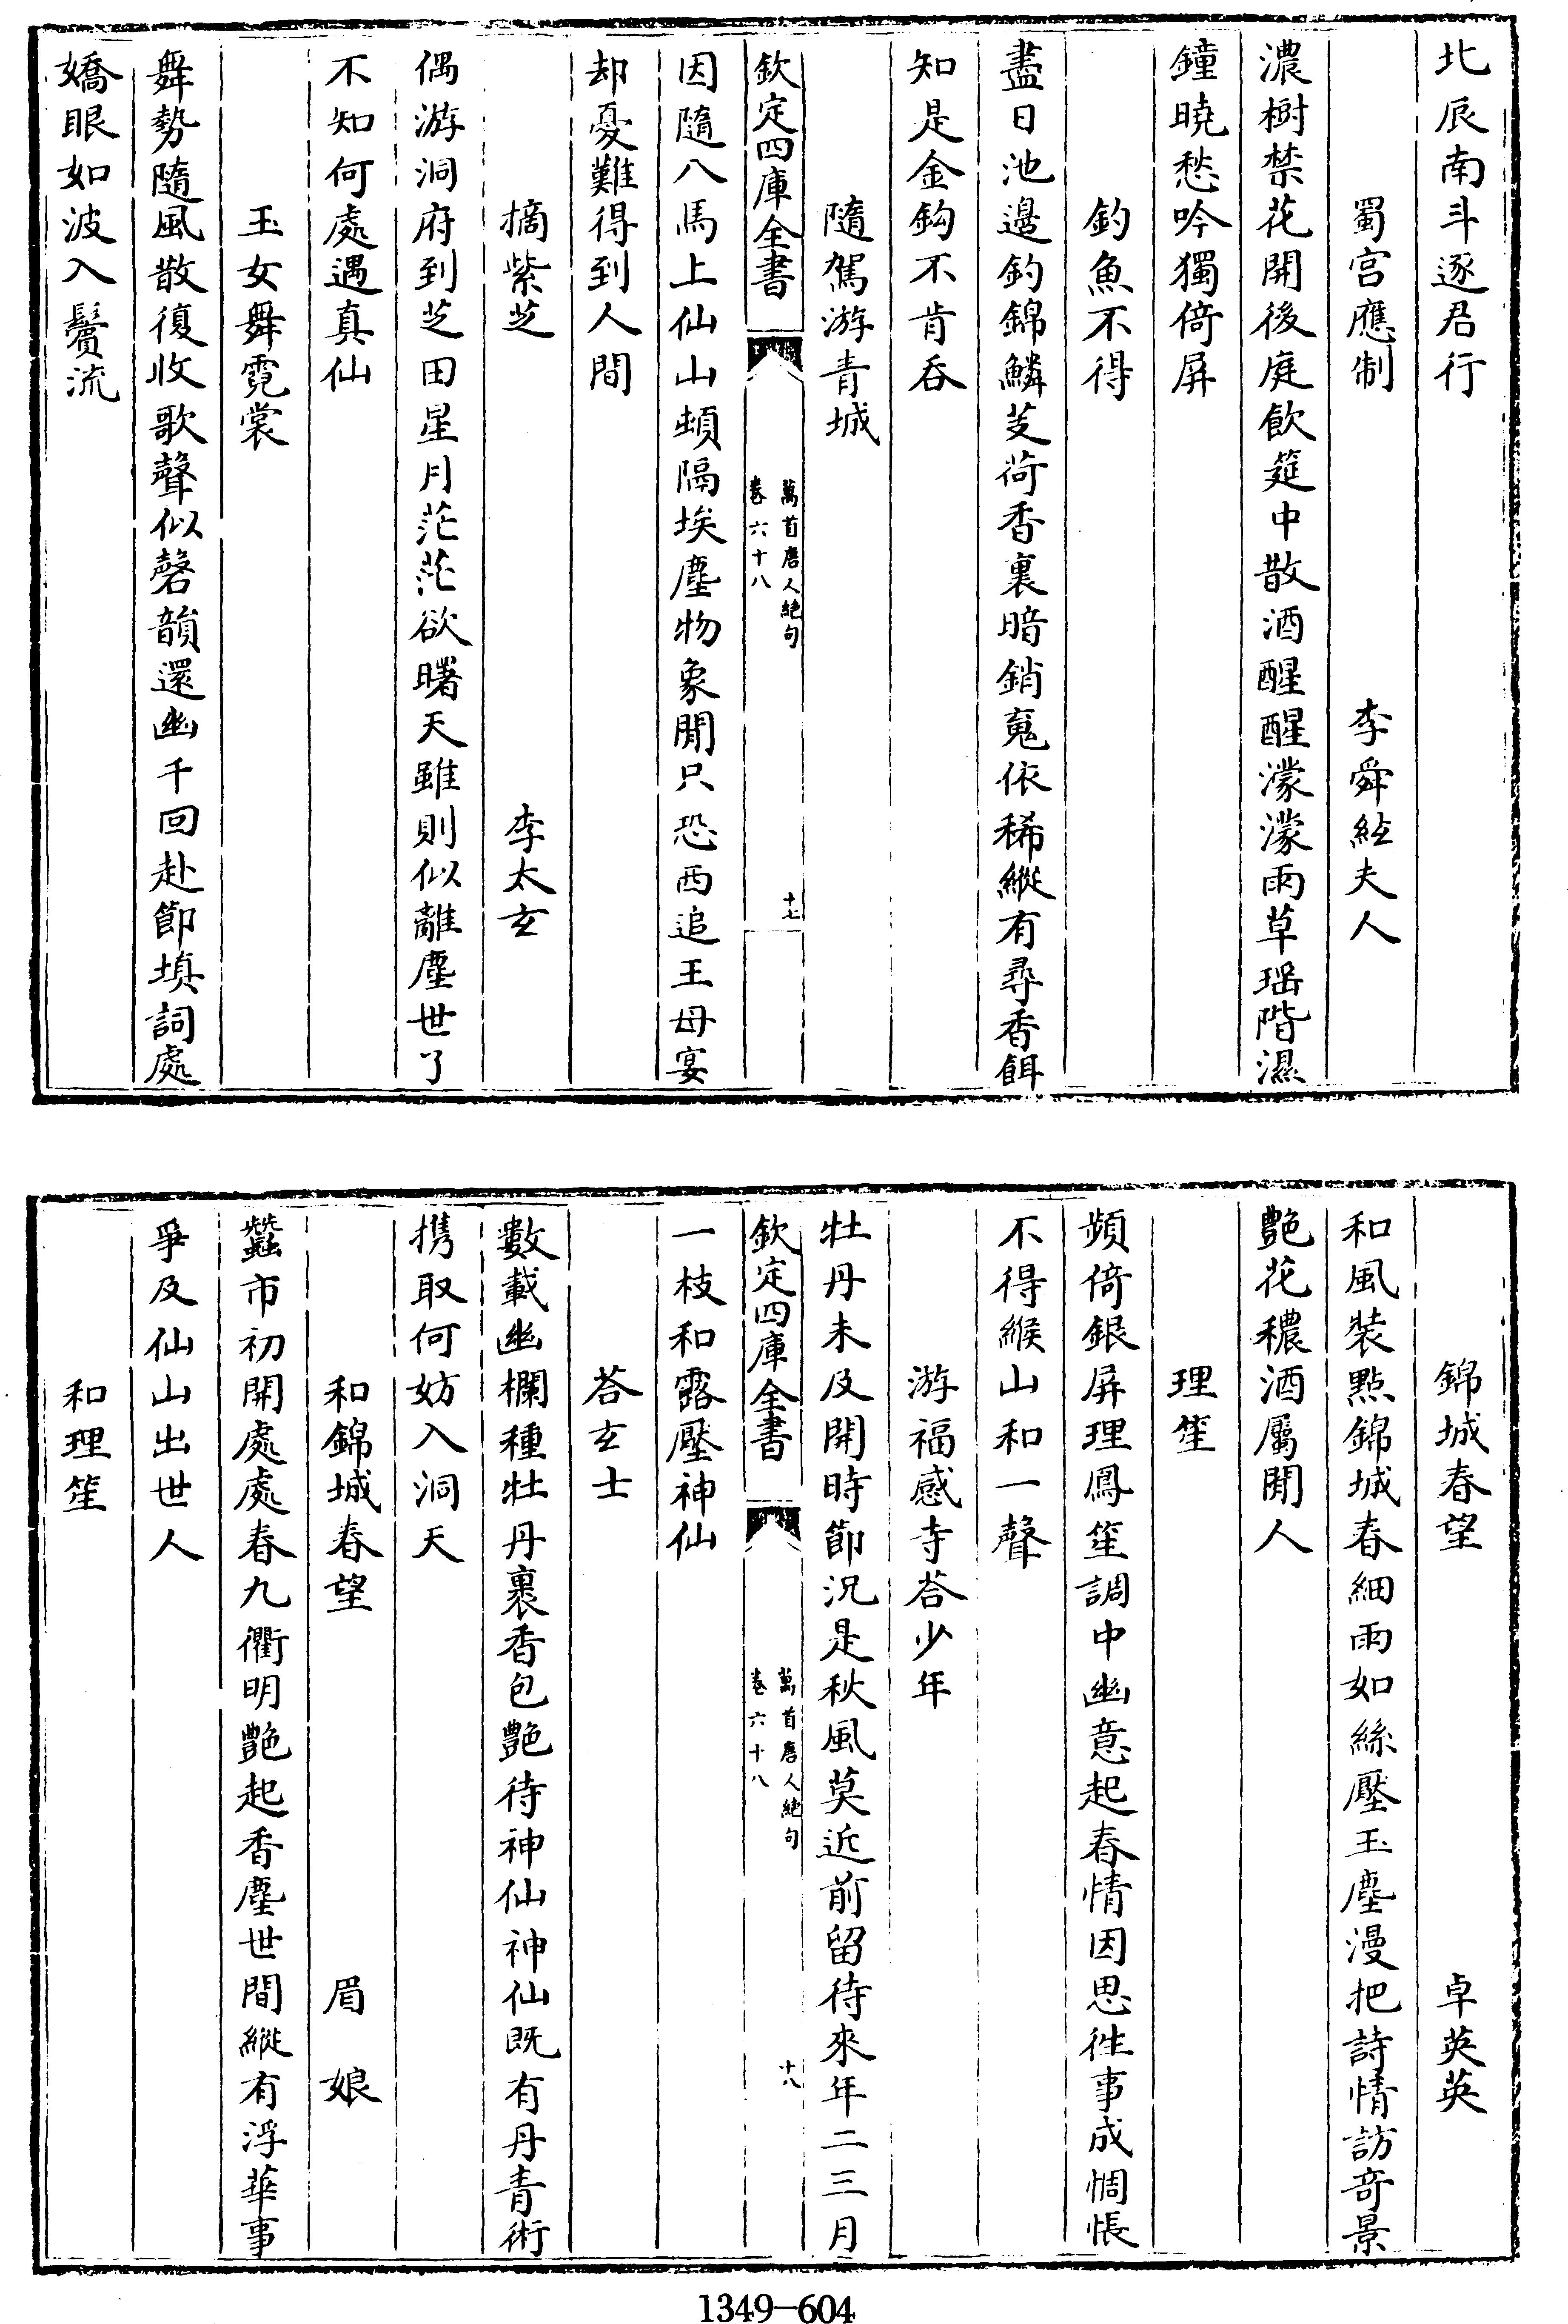 北辰南斗逐君行
蜀宫應制 李舜絃夫人
濃樹禁花開後庭飲筵中散酒醒醒濛濛雨草瑶階濕
鐘曉愁吟獨倚屏
釣魚不得
盡日池邊釣錦鱗芰荷香裏暗銷䰟依稀縱有尋香餌
知是金鈎不肯吞
隨駕游青城
欽定四庫全書
萬首唐人絶句
卷六十八
十七
因隨八馬上仙山頓隔埃塵物象閒只恐西追王母宴
却憂難得到人間
摘紫芝 李太玄
偶游洞府到芝田星月茫茫欲曙天雖則似離塵世了
不知何處遇真仙
玉女舞霓裳
舞勢隨風散復收歌聲似磬韻還幽千回赴節填詞處
嬌眼如波入鬢流
錦城春望 卓英英
和風装點錦城春細雨如絲壓玉塵漫把詩情訪竒景
艷花穠酒屬閒人
理笙
頻倚銀屏理鳳笙調中幽意起春情因思徃事成惆悵
不得緱山和一聲
游福感寺荅少年
牡丹未及開時節况是秋風莫近前留待來年二三月
欽定四庫全書
萬首唐人絶句
卷六十八
十八
一枝和露壓神仙
荅玄士
數載幽欄種牡丹裹香包艷待神仙神仙既有丹青術
携取何妨入洞天
和錦城春望 眉娘
蠶市初開處處春九衢明艷起香塵世間縱有浮華事
爭及仙山出世人
和理笙
1349—604